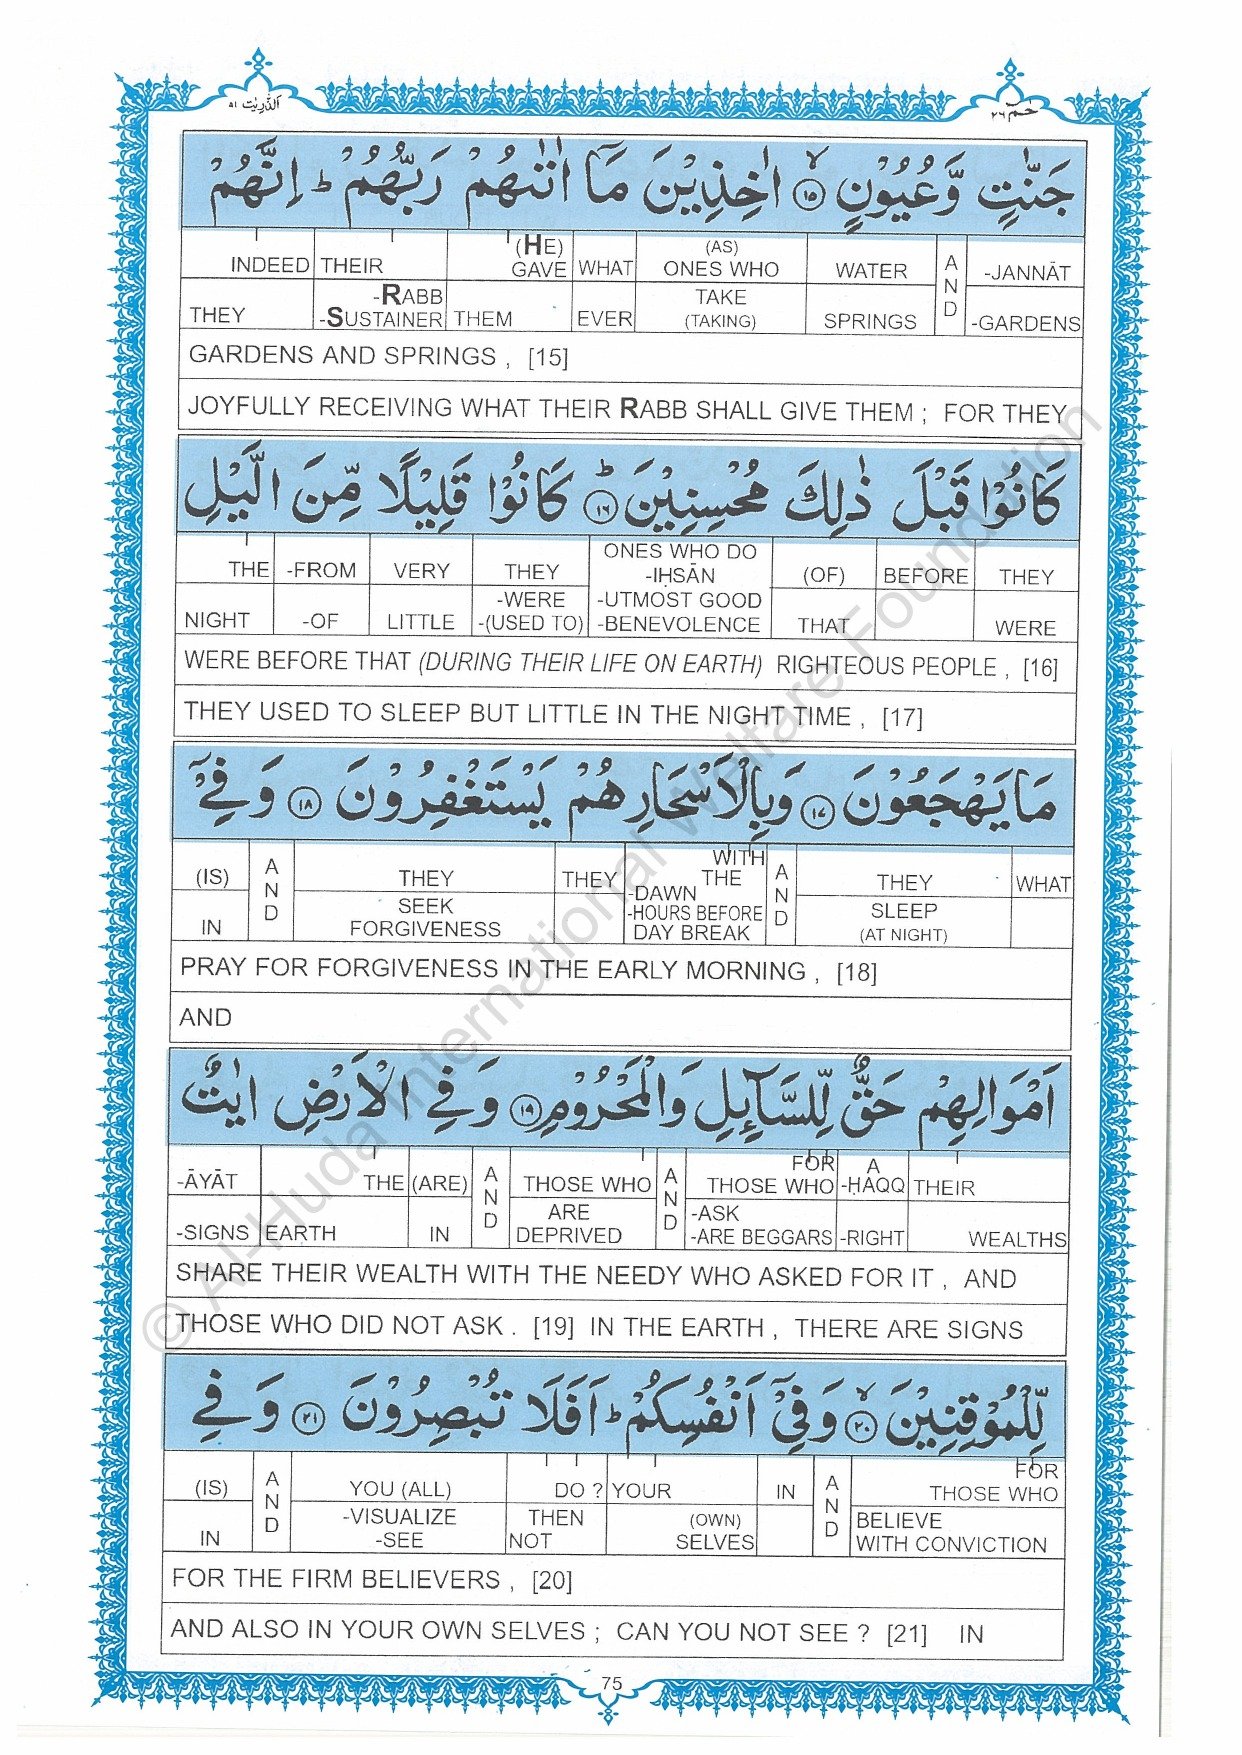 اَلذّٰرِيٰت ٥١
حٰمٓ ٢٦
جَنّٰتٍ وَّعُيُوْنٍ ۙ ١٥ اٰخِذِيْنَ مَآ اٰتٰىهُمْ رَبُّهُمْ ؕ اِنَّهُمْ
INDEED THEIR (HE) GAVE WHAT (AS) ONES WHO WATER AND -JANNĀT
THEY -RABB -SUSTAINER THEM EVER TAKE (TAKING) SPRINGS -GARDENS
GARDENS AND SPRINGS , [15]
JOYFULLY RECEIVING WHAT THEIR RABB SHALL GIVE THEM ; FOR THEY
كَانُوْا قَبْلَ ذٰلِكَ مُحْسِنِيْنَ ؕ ١٦ كَانُوْا قَلِيْلًا مِّنَ الَّيْلِ
THE -FROM VERY THEY ONES WHO DO -IḤSĀN (OF) BEFORE THEY
NIGHT -OF LITTLE -WERE -(USED TO) -UTMOST GOOD -BENEVOLENCE THAT WERE
WERE BEFORE THAT (DURING THEIR LIFE ON EARTH) RIGHTEOUS PEOPLE , [16]
THEY USED TO SLEEP BUT LITTLE IN THE NIGHT TIME , [17]
مَا يَهْجَعُوْنَ ١٧ وَبِالْاَسْحَارِ هُمْ يَسْتَغْفِرُوْنَ ١٨ وَفِيْٓ
(IS) AND THEY THEY WITH THE AND THEY WHAT
IN SEEK FORGIVENESS -DAWN -HOURS BEFORE DAY BREAK SLEEP (AT NIGHT)
PRAY FOR FORGIVENESS IN THE EARLY MORNING , [18]
AND
اَمْوَالِهِمْ حَقٌّ لِّلسَّآىِٕلِ وَالْمَحْرُوْمِ ١٩ وَفِي الْاَرْضِ اٰيٰتٌ
-ĀYĀT THE (ARE) AND THOSE WHO AND FOR THOSE WHO A -ḤAQQ THEIR
-SIGNS EARTH IN ARE DEPRIVED -ASK -ARE BEGGARS -RIGHT WEALTHS
SHARE THEIR WEALTH WITH THE NEEDY WHO ASKED FOR IT , AND
THOSE WHO DID NOT ASK . [19] IN THE EARTH , THERE ARE SIGNS
لِّلْمُوْقِنِيْنَ ۙ ٢٠ وَفِيْٓ اَنْفُسِكُمْ ؕ اَفَلَا تُبْصِرُوْنَ ٢١ وَفِي
(IS) AND YOU (ALL) DO ? YOUR IN AND FOR THOSE WHO
IN -VISUALIZE -SEE THEN NOT (OWN) SELVES BELIEVE WITH CONVICTION
FOR THE FIRM BELIEVERS , [20]
AND ALSO IN YOUR OWN SELVES ; CAN YOU NOT SEE ? [21] IN
75
© Al-Huda International Welfare Foundation